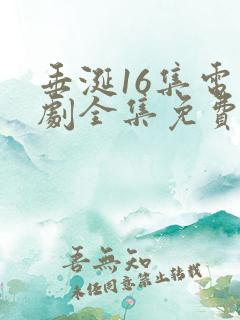 垂涎16集電
劇全集免費
吾無知
未經同意禁止轉載